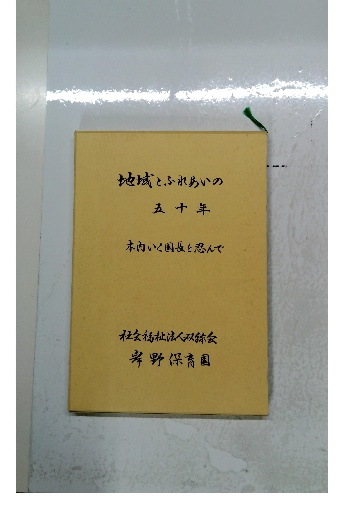 地域とふれあいの
五十年
木内いく園長を忍んで
社会福祉法人双弥会
岸野保育園